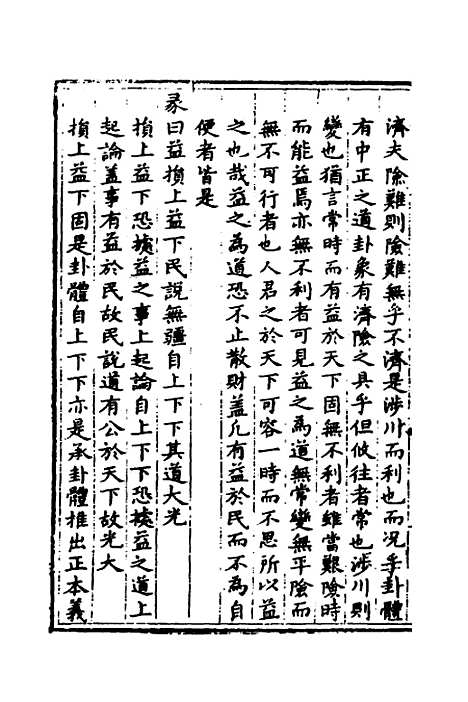 濟夫險難則險難無乎不濟是涉川而利也而况乎卦體
有中正之道卦象有濟險之具乎但攸往者常也涉川則
變也猶言常時而有益於天下固無不利者雖當艱險時
而能益焉亦無不利者可見益之為道無常變無平險而
無不可行者也人君之於天下可容一時而不思所以益
之也哉益之為道恐不止散財盖凢有益於民而不為自
便者皆是
彖曰益損上益下民說無疆自上下下其道大光
損上益下恐據益之事上起論自上下下恐據益之道上
起論盖事有益於民故民說道有公於天下故光大
損上益下固是卦體自上下下亦是承卦體推出正本義